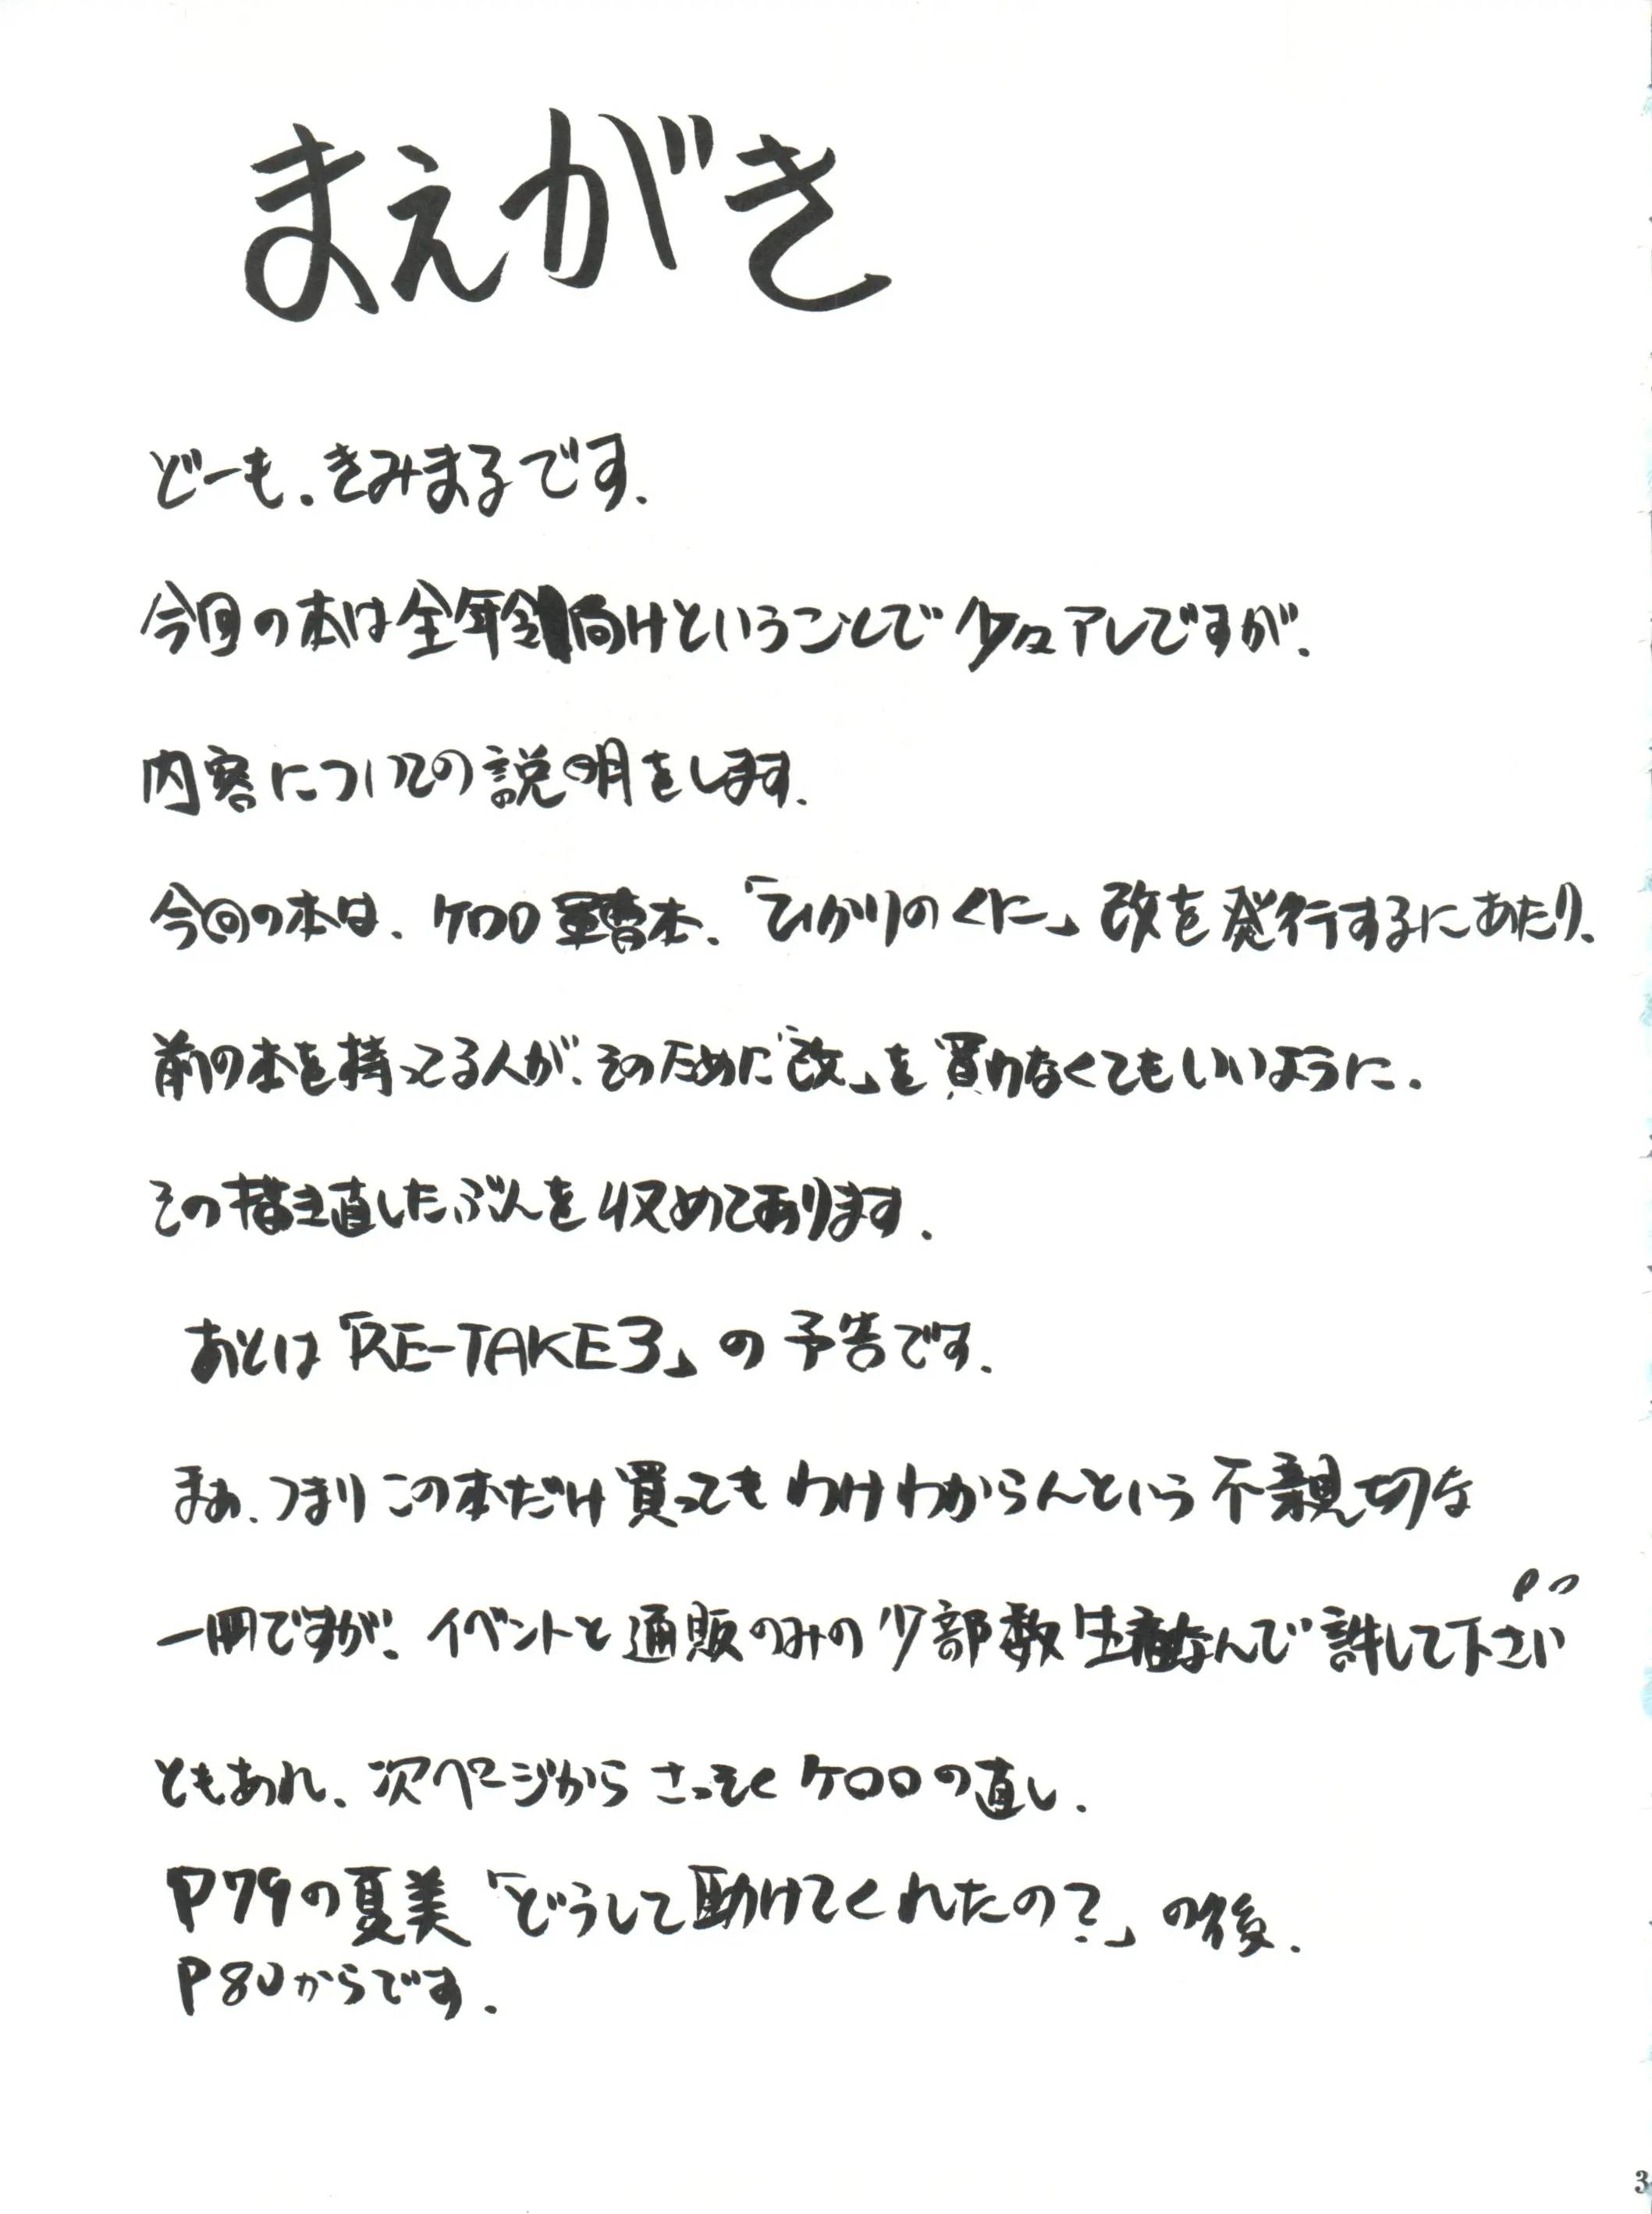 まえがき
どーも、きみまるです.
今回の本は全年齢向けということで少々アレですが、
内容についての説明をします.
今回の本は、ケロロ軍曹本、「ひかりのくに」改を発行するにあたり、
前の本を持ってる人が、そのために「改」を買わなくてもいいように、
その描き直したぶんを収めてあります.
あとは「RE-TAKE3」の予告です.
まぁ、つまりこの本だけ買ってもわけわからんという不親切な
一冊ですが、イベントと通販のみの少部数生産なんで許して下さい
ともあれ、次ページからさっそくケロロの直し.
P79の夏美「どうして助けてくれたの?」の後.
P80からです.
3